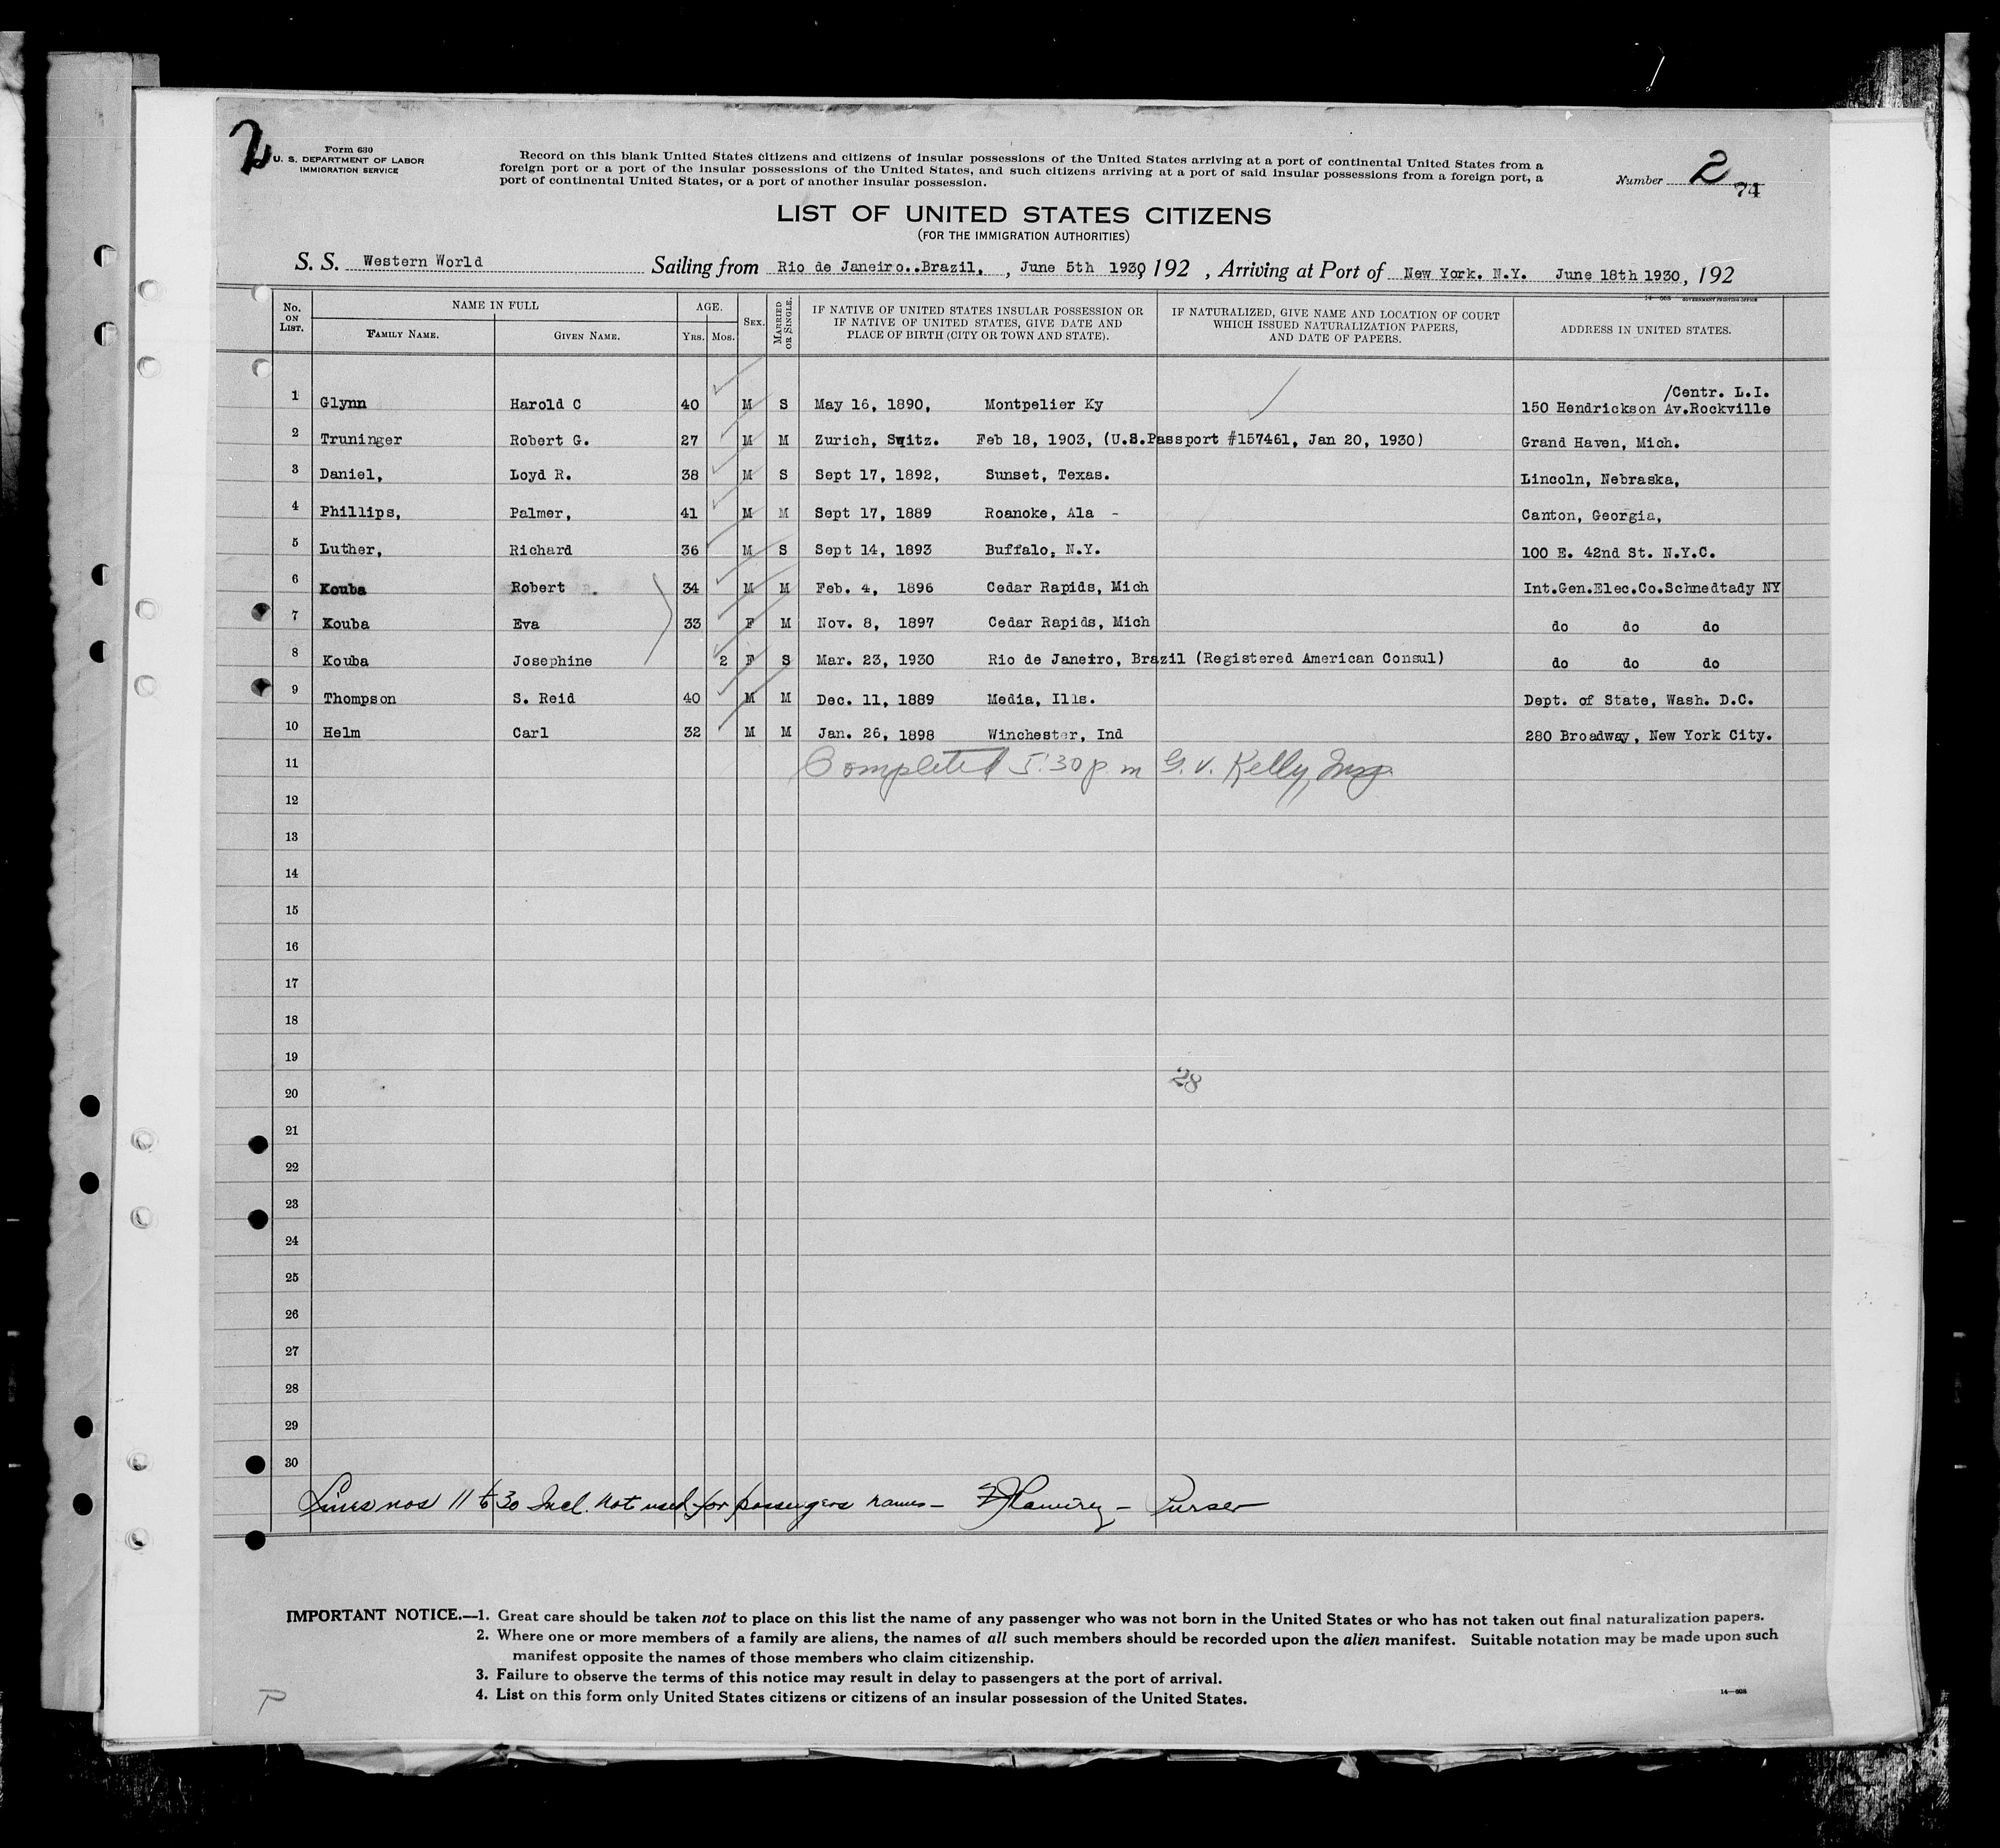 2
Form 630
U. S. DEPARTMENT OF LABOR
IMMIGRATION SERVICE
Record on this blank United States citizens and citizens of insular possessions of the United States arriving at a port of continental United States from a
foreign port or a port of the insular possessions of the United States, and such citizens arriving at a port of said insular possessions from a foreign port, a
port of continental United States, or a port of another insular possession.
Number 2 74
LIST OF UNITED STATES CITIZENS
(FOR THE IMMIGRATION AUTHORITIES)
S. S. Western World Sailing from Rio de Janeiro..Brazil. , June 5th 1930, 192 , Arriving at Port of New York. N.Y. June 18th 1930, 192
14—608 GOVERNMENT PRINTING OFFICE
No. ON LIST. NAME IN FULL FAMILY NAME. GIVEN NAME. AGE. YRS. MOS. SEX. MARRIED OR SINGLE. IF NATIVE OF UNITED STATES INSULAR POSSESSION OR IF NATIVE OF UNITED STATES, GIVE DATE AND PLACE OF BIRTH (CITY OR TOWN AND STATE). IF NATURALIZED, GIVE NAME AND LOCATION OF COURT WHICH ISSUED NATURALIZATION PAPERS, AND DATE OF PAPERS. ADDRESS IN UNITED STATES.
/Centr. L.I.
1 Glynn Harold C 40 M S May 16, 1890, Montpelier Ky 150 Hendrickson Av.Rockville
2 Truninger Robert G. 27 M M Zurich, Switz. Feb 18, 1903, (U.S.Passport #157461, Jan 20, 1930) Grand Haven, Mich.
3 Daniel, Loyd R. 38 M S Sept 17, 1892, Sunset, Texas. Lincoln, Nebraska,
4 Phillips, Palmer, 41 M M Sept 17, 1889 Roanoke, Ala - Canton, Georgia,
5 Luther, Richard 36 M S Sept 14, 1893 Buffalo, N.Y. 100 E. 42nd St. N.Y.C.
6 Kouba Robert . 34 M M Feb. 4, 1896 Cedar Rapids, Mich Int.Gen.Elec.Co.Schnedtady NY
7 Kouba Eva 33 F M Nov. 8, 1897 Cedar Rapids, Mich do do do
8 Kouba Josephine 2 F S Mar. 23, 1930 Rio de Janeiro, Brazil (Registered American Consul) do do do
9 Thompson S. Reid 40 M M Dec. 11, 1889 Media, Ills. Dept. of State, Wash. D.C.
10 Helm Carl 32 M M Jan. 26, 1898 Winchester, Ind 280 Broadway, New York City.
11 Completed 5:30 p.m G. V. Kelly, Insp.
12
13
14
15
16
17
18
19
28
20
21
22
23
24
25
26
27
28
29
30
Lines nos 11 to 30 Incl. not used for passengers names — Purser
IMPORTANT NOTICE.—1. Great care should be taken not to place on this list the name of any passenger who was not born in the United States or who has not taken out final naturalization papers.
2. Where one or more members of a family are aliens, the names of all such members should be recorded upon the alien manifest. Suitable notation may be made upon such
manifest opposite the names of those members who claim citizenship.
3. Failure to observe the terms of this notice may result in delay to passengers at the port of arrival.
4. List on this form only United States citizens or citizens of an insular possession of the United States.
14—608
P